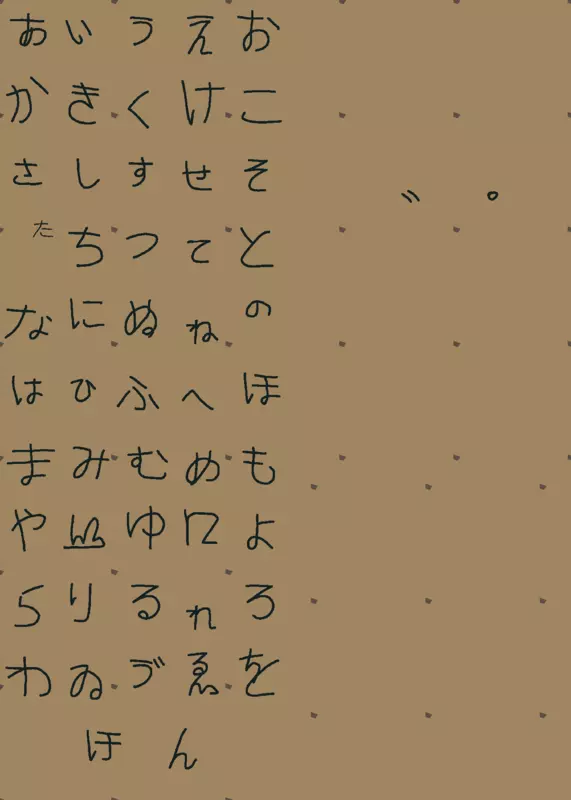 あ い う え お
か き く け こ
さ し す せ そ
゛ ゜
た ち つ て と
な に ぬ ね の
は ひ ふ へ ほ
ま み む め も
や ゆ よ
ら り る れ ろ
わ ゐ ゔ ゑ を
ん